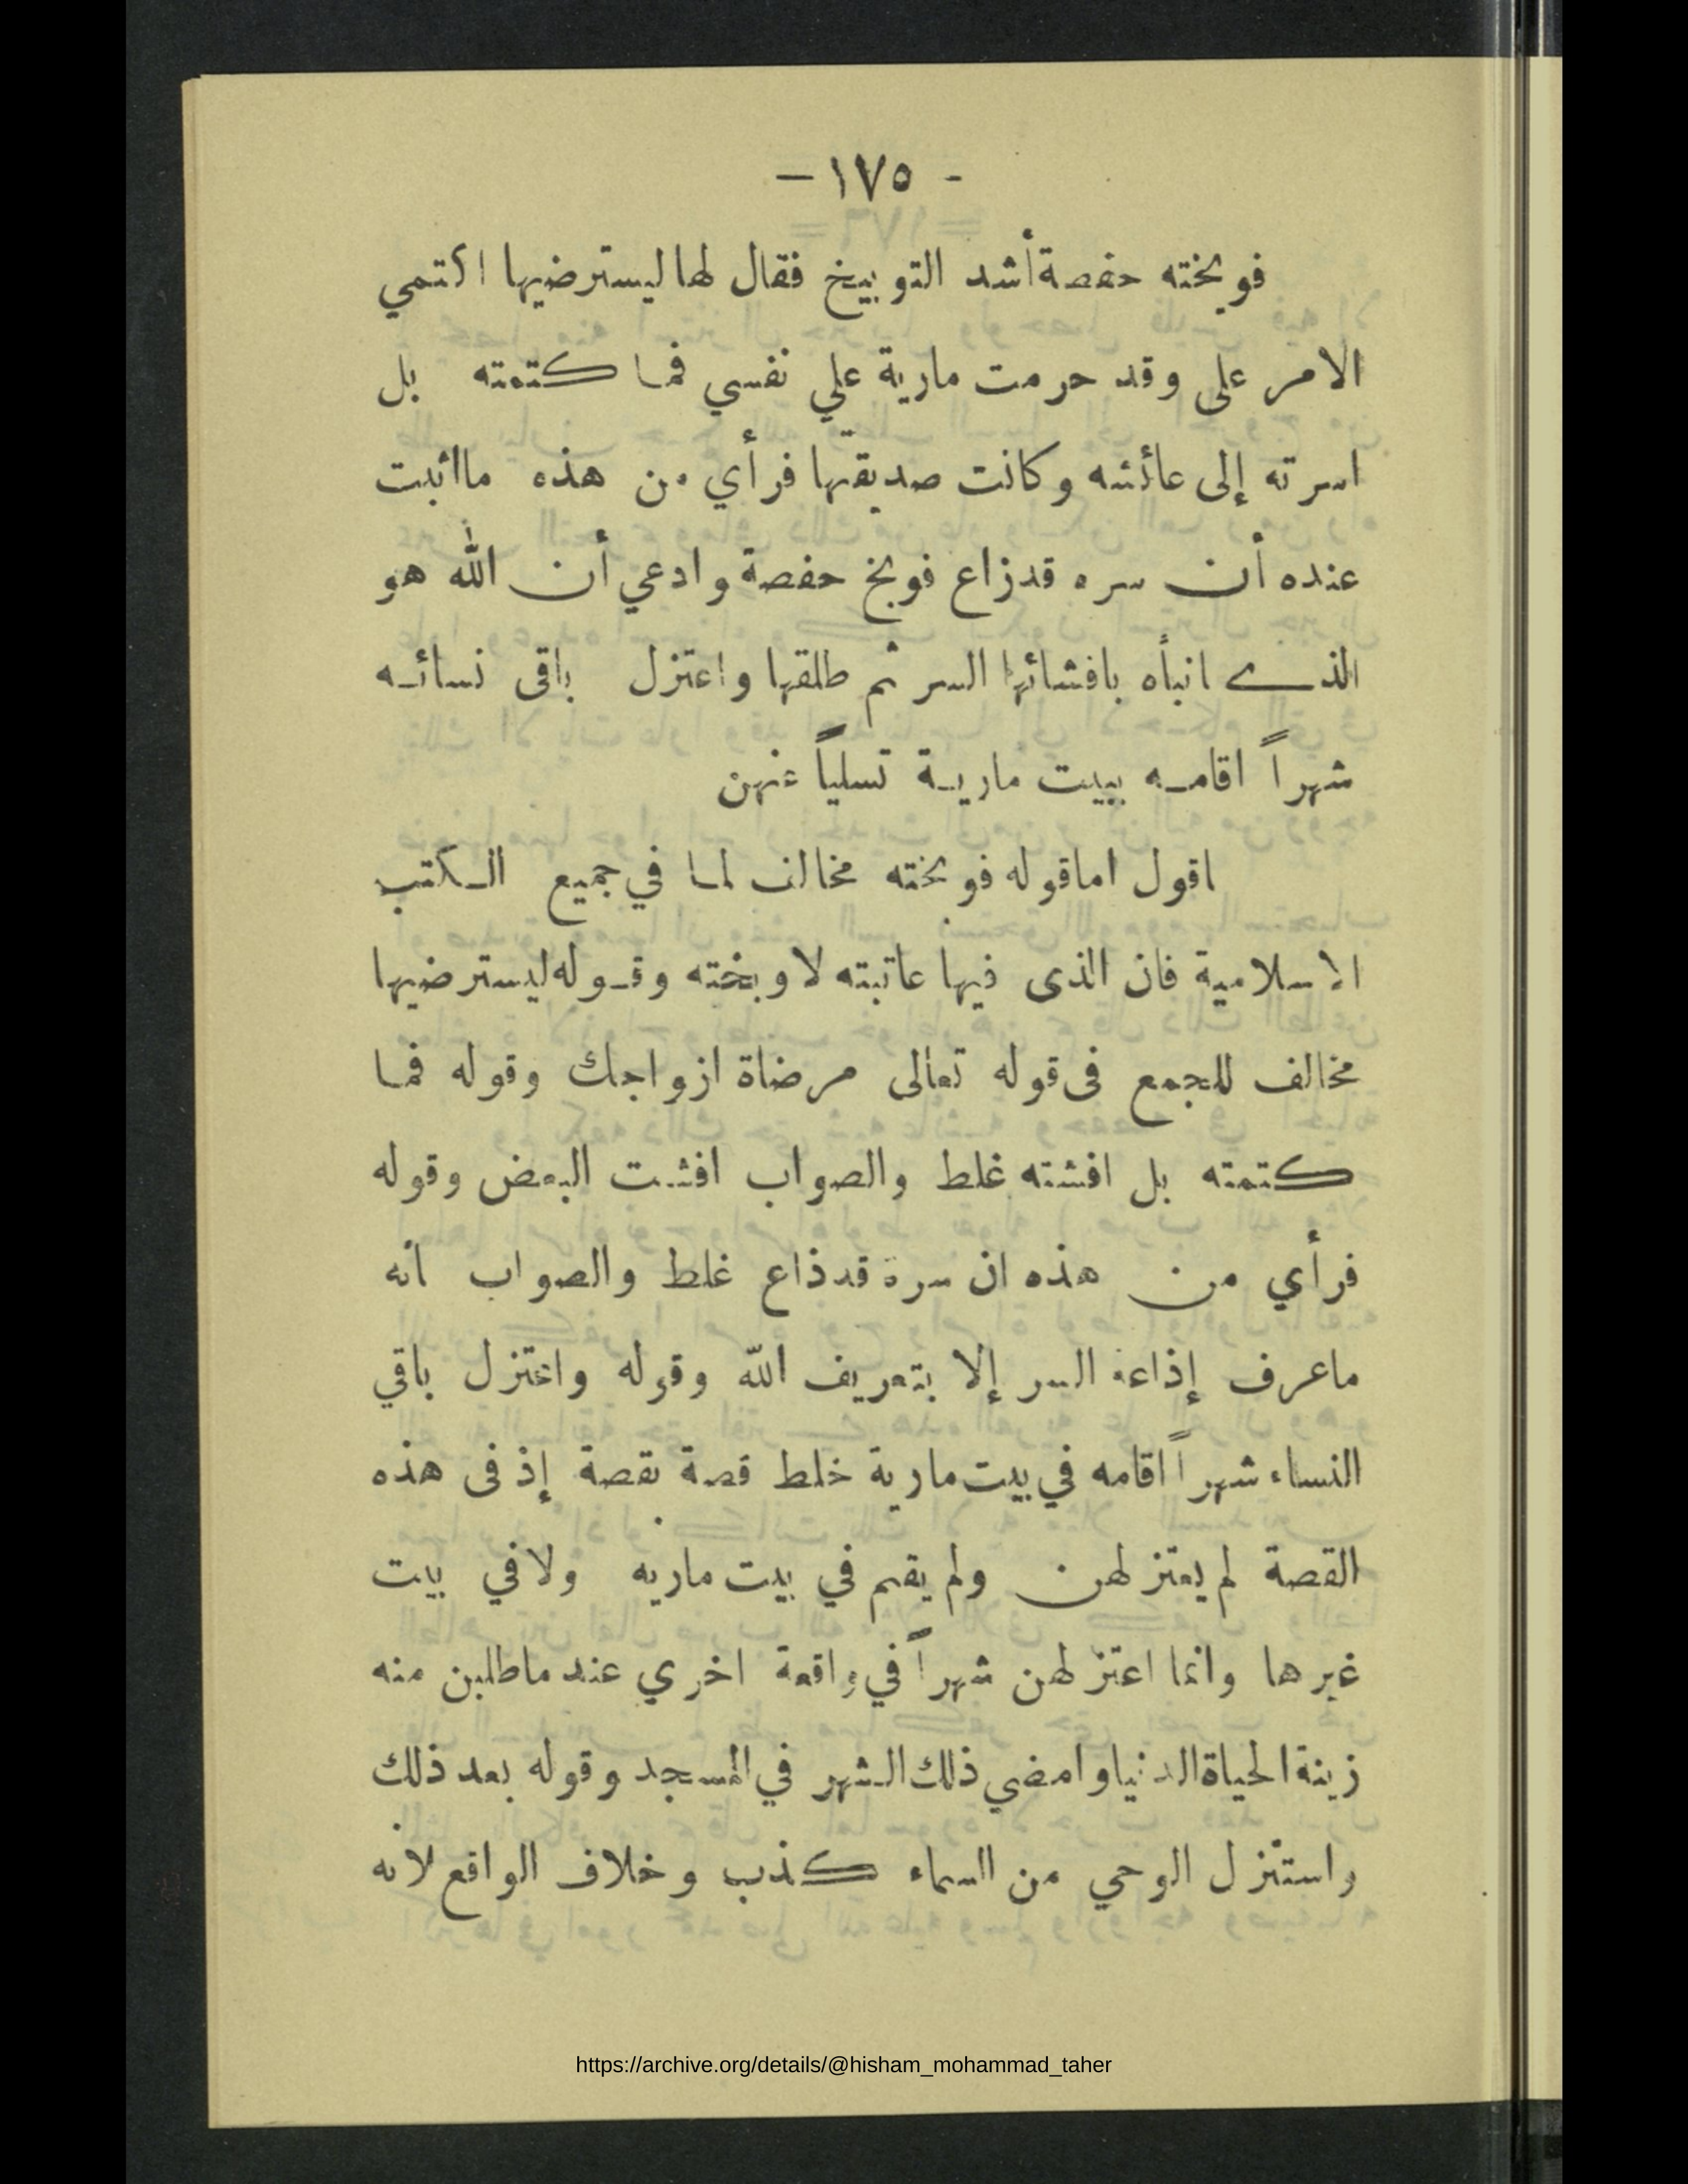 - ١٧٥ -
فوبخته حفصة أشد التوبيخ فقال لها ليسترضيها اكتمي
الامر على وقد حرمت مارية علي نفسي فما كتمته بل
اسرته إلى عائشه وكانت صديقتها فرأي من هذه مااثبت
عنده أن سره قدزاع فوبخ حفصة وادعي أن الله هو
الذي انبأه بافشائها السر ثم طلقها واعتزل باقى نسائه
شهراً اقامه ببيت مارية تسلياً عنهن
اقول اماقوله فوبخته مخالف لما في جميع الكتب
الاسلامية فان الذى فيها عاتبته لا وبخته وقوله ليسترضيها
مخالف للجمع فى قوله تعالى مرضاة ازواجك وقوله فما
كتمته بل افشته غلط والصواب افشت البعض وقوله
فرأي من هذه ان سره قدذاع غلط والصواب انه
ماعرف إذاعة السر إلا بتعريف الله وقوله واعتزل باقي
النساء شهراً اقامه في بيت مارية خلط قصة بقصة إذ فى هذه
القصة لم يعتزلهن ولم يقم في بيت ماريه ولا في بيت
غيرها وانما اعتزلهن شهراً في واقعة اخري عند ماطلبن منه
زينة الحياة الدنيا وامضي ذلك الشهر في المسجد وقوله بعد ذلك
واستنزل الوحي من السماء كذب وخلاف الواقع لانه
https://archive.org/details/@hisham_mohammad_taher